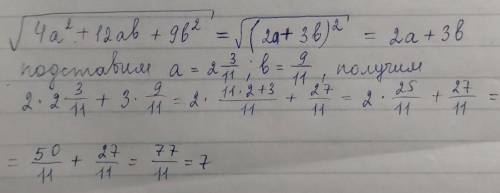 √(4a² + 12ab + 9b²) = √((2a + 3b)²) = 2a + 3b
подставим a = 2 3/11, b = 9/11, получим
2 · 2 3/11 + 3 · 9/11 = 2 · (11·2+3)/11 + 27/11 = 2 · 25/11 + 27/11 =
= 50/11 + 27/11 = 77/11 = 7